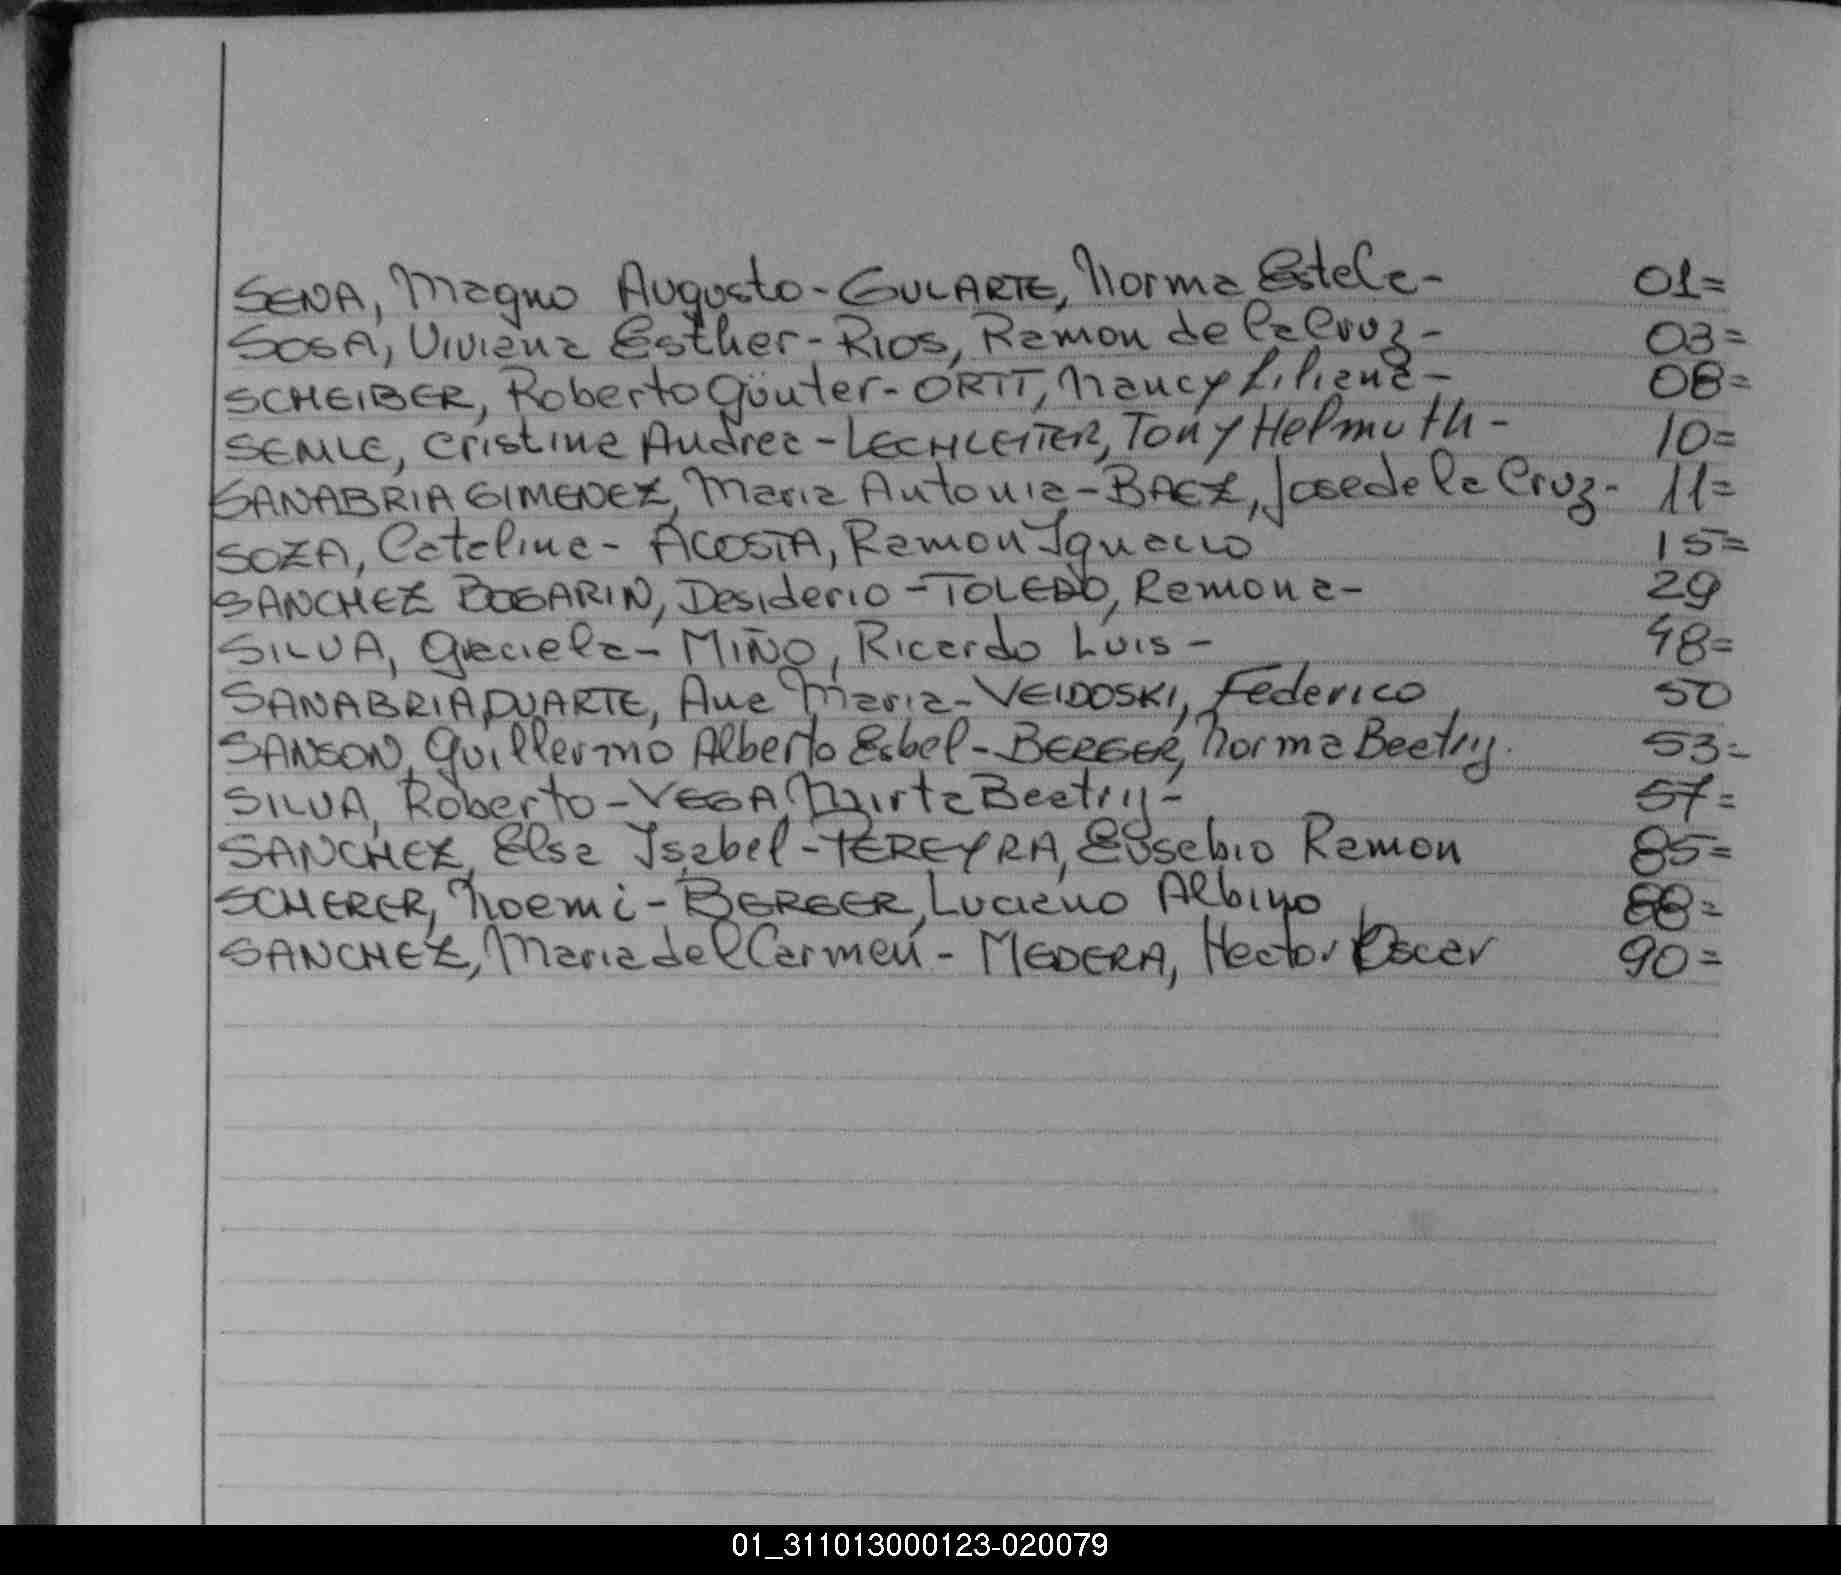 SENA, Magno Augusto - GULARTE, Norma Estela - 01=
SOSA, Viviana Esther - RIOS, Ramon de la Cruz - 03=
SCHEIBER, Roberto Günter - ORTT, Nancy Liliana - 08=
SEMLE, Cristina Andrea - LECHLEITER, Tony Helmuth - 10=
SANABRIA GIMENEZ, Maria Antonia - BAEZ, Jose de la Cruz - 11=
SOZA, Catalina - ACOSTA, Ramon Ignacio 15=
SANCHEZ BOGARIN, Desiderio - TOLEDO, Ramona - 29
SILVA, Graciela - MIÑO, Ricardo Luis - 48=
SANABRIA DUARTE, Ana Maria - VEIDOSKI, Federico 50
SANSON, Guillermo Alberto Esbel - BERGER, Norma Beatriz. 53=
SILVA, Roberto - VEGA, Mirta Beatriz - 57=
SANCHEZ, Elsa Isabel - PEREYRA, Eusebio Ramon 85=
SCHERER, Noemi - BERGER, Luciano Albino 88=
SANCHEZ, Maria del Carmen - MEDERA, Hector Oscar 90=
01_311013000123-020079